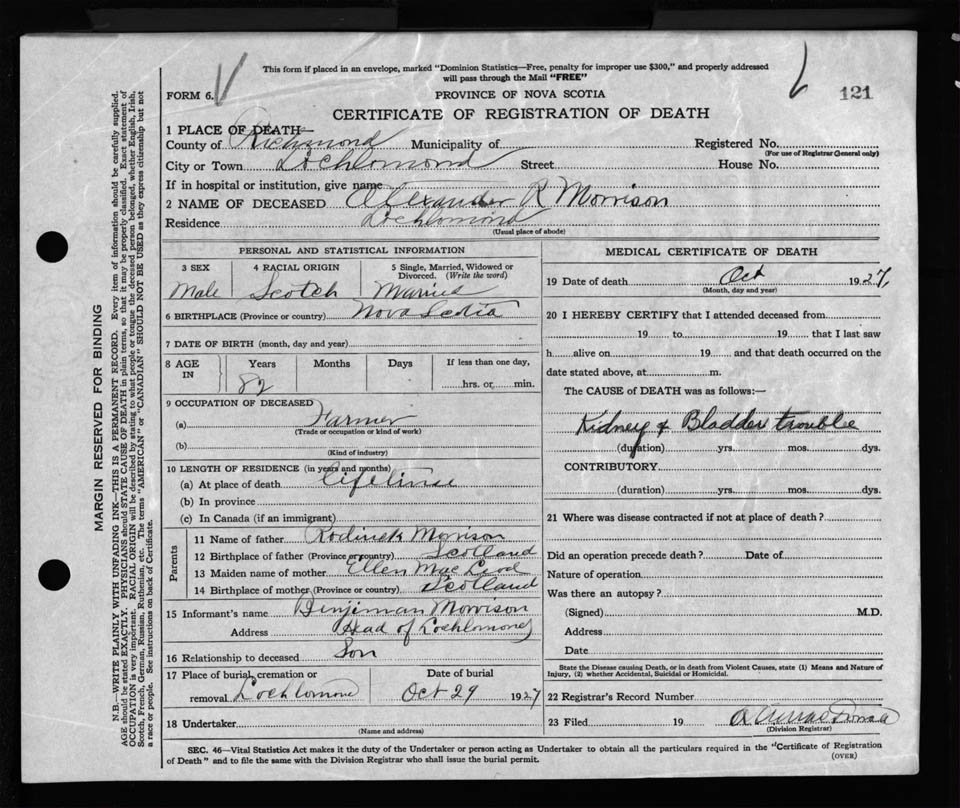 This form if placed in an envelope, marked "Dominion Statistics—Free, penalty for improper use $300," and properly addressed
will pass through the Mail "FREE"
FORM 6.
PROVINCE OF NOVA SCOTIA
121
CERTIFICATE OF REGISTRATION OF DEATH
1 PLACE OF DEATH—
County of Richmond Municipality of Registered No.
(For use of Registrar General only)
City or Town Lochlomond Street House No.
If in hospital or institution, give name
2 NAME OF DECEASED Alexander R Morrison
Residence Lochlomond
(Usual place of abode)
PERSONAL AND STATISTICAL INFORMATION
3 SEX 4 RACIAL ORIGIN 5 Single, Married, Widowed or
Divorced. (Write the word)
Male Scotch Married
6 BIRTHPLACE (Province or country) Nova Scotia
7 DATE OF BIRTH (month, day and year)
8 AGE IN Years Months Days If less than one day,
82 hrs. or min.
9 OCCUPATION OF DECEASED
(a) Farmer
(Trade or occupation or kind of work)
(b)
(Kind of industry)
10 LENGTH OF RESIDENCE (in years and months)
(a) At place of death lifetime
(b) In province
(c) In Canada (if an immigrant)
Parents
11 Name of father Roderick Morrison
12 Birthplace of father (Province or country) Scotland
13 Maiden name of mother Ellen Mac Leod
14 Birthplace of mother (Province or country) Scotland
15 Informant's name Benjiman Morrison
Address Head of Lochlomond
16 Relationship to deceased Son
17 Place of burial, cremation or Date of burial
removal Lochlomond Oct 29 1927
18 Undertaker
(Name and address)
MEDICAL CERTIFICATE OF DEATH
19 Date of death Oct 1927,
(Month, day and year)
20 I HEREBY CERTIFY that I attended deceased from
19 to 19 that I last saw
h alive on 19 and that death occurred on the
date stated above, at m.
The CAUSE of DEATH was as follows:—
Kidney & Bladder trouble
(duration) yrs. mos. dys.
CONTRIBUTORY
(duration) yrs. mos. dys.
21 Where was disease contracted if not at place of death?
Did an operation precede death? Date of
Nature of operation
Was there an autopsy?
(Signed) M.D.
Address
Date
State the Disease causing Death, or in death from Violent Causes, state (1) Means and Nature of
Injury, (2) whether Accidental, Suicidal or Homicidal.
22 Registrar's Record Number
23 Filed 19
(Division Registrar)
SEC. 46—Vital Statistics Act makes it the duty of the Undertaker or person acting as Undertaker to obtain all the particulars required in the "Certificate of Registration
of Death" and to file the same with the Division Registrar who shall issue the burial permit.
(OVER)
MARGIN RESERVED FOR BINDING
N.B.—WRITE PLAINLY WITH UNFADING INK—THIS IS A PERMANENT RECORD. Every item of information should be carefully supplied.
AGE should be stated EXACTLY. PHYSICIANS should STATE CAUSE OF DEATH in plain terms, so that it may be properly classified. Exact statement of
OCCUPATION is very important. RACIAL ORIGIN will be described by stating to what people or tongue the deceased person belonged, whether English, Irish,
Scotch, French, German, Russian, Ruthenian, etc. The terms "AMERICAN" or "CANADIAN" SHOULD NOT BE USED as they express citizenship but not
a race or people. See instructions on back of Certificate.